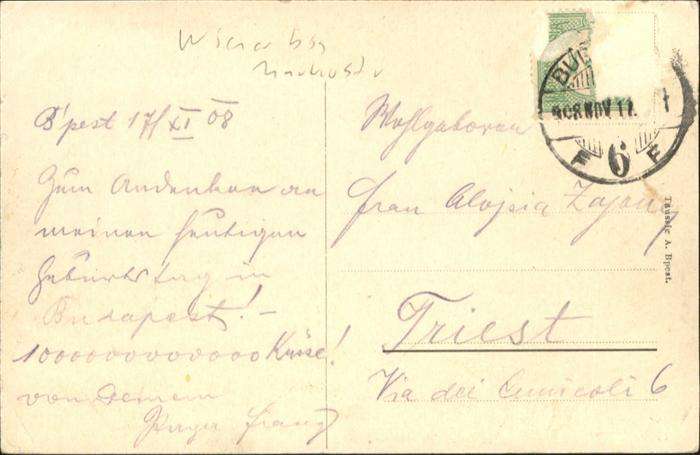 B'pest 17/XI 08
Zum Andenken an
meinen heutigen
Geburtstag in
Budapest! –
1000000000000 Küsse!
von Deinem
Franz
Wohlgeboren
Frau Aloisia
Triest
Via dei Cunicoli 6
BU
908 NOV 17.
6
F F
Taussig A. Bpest.